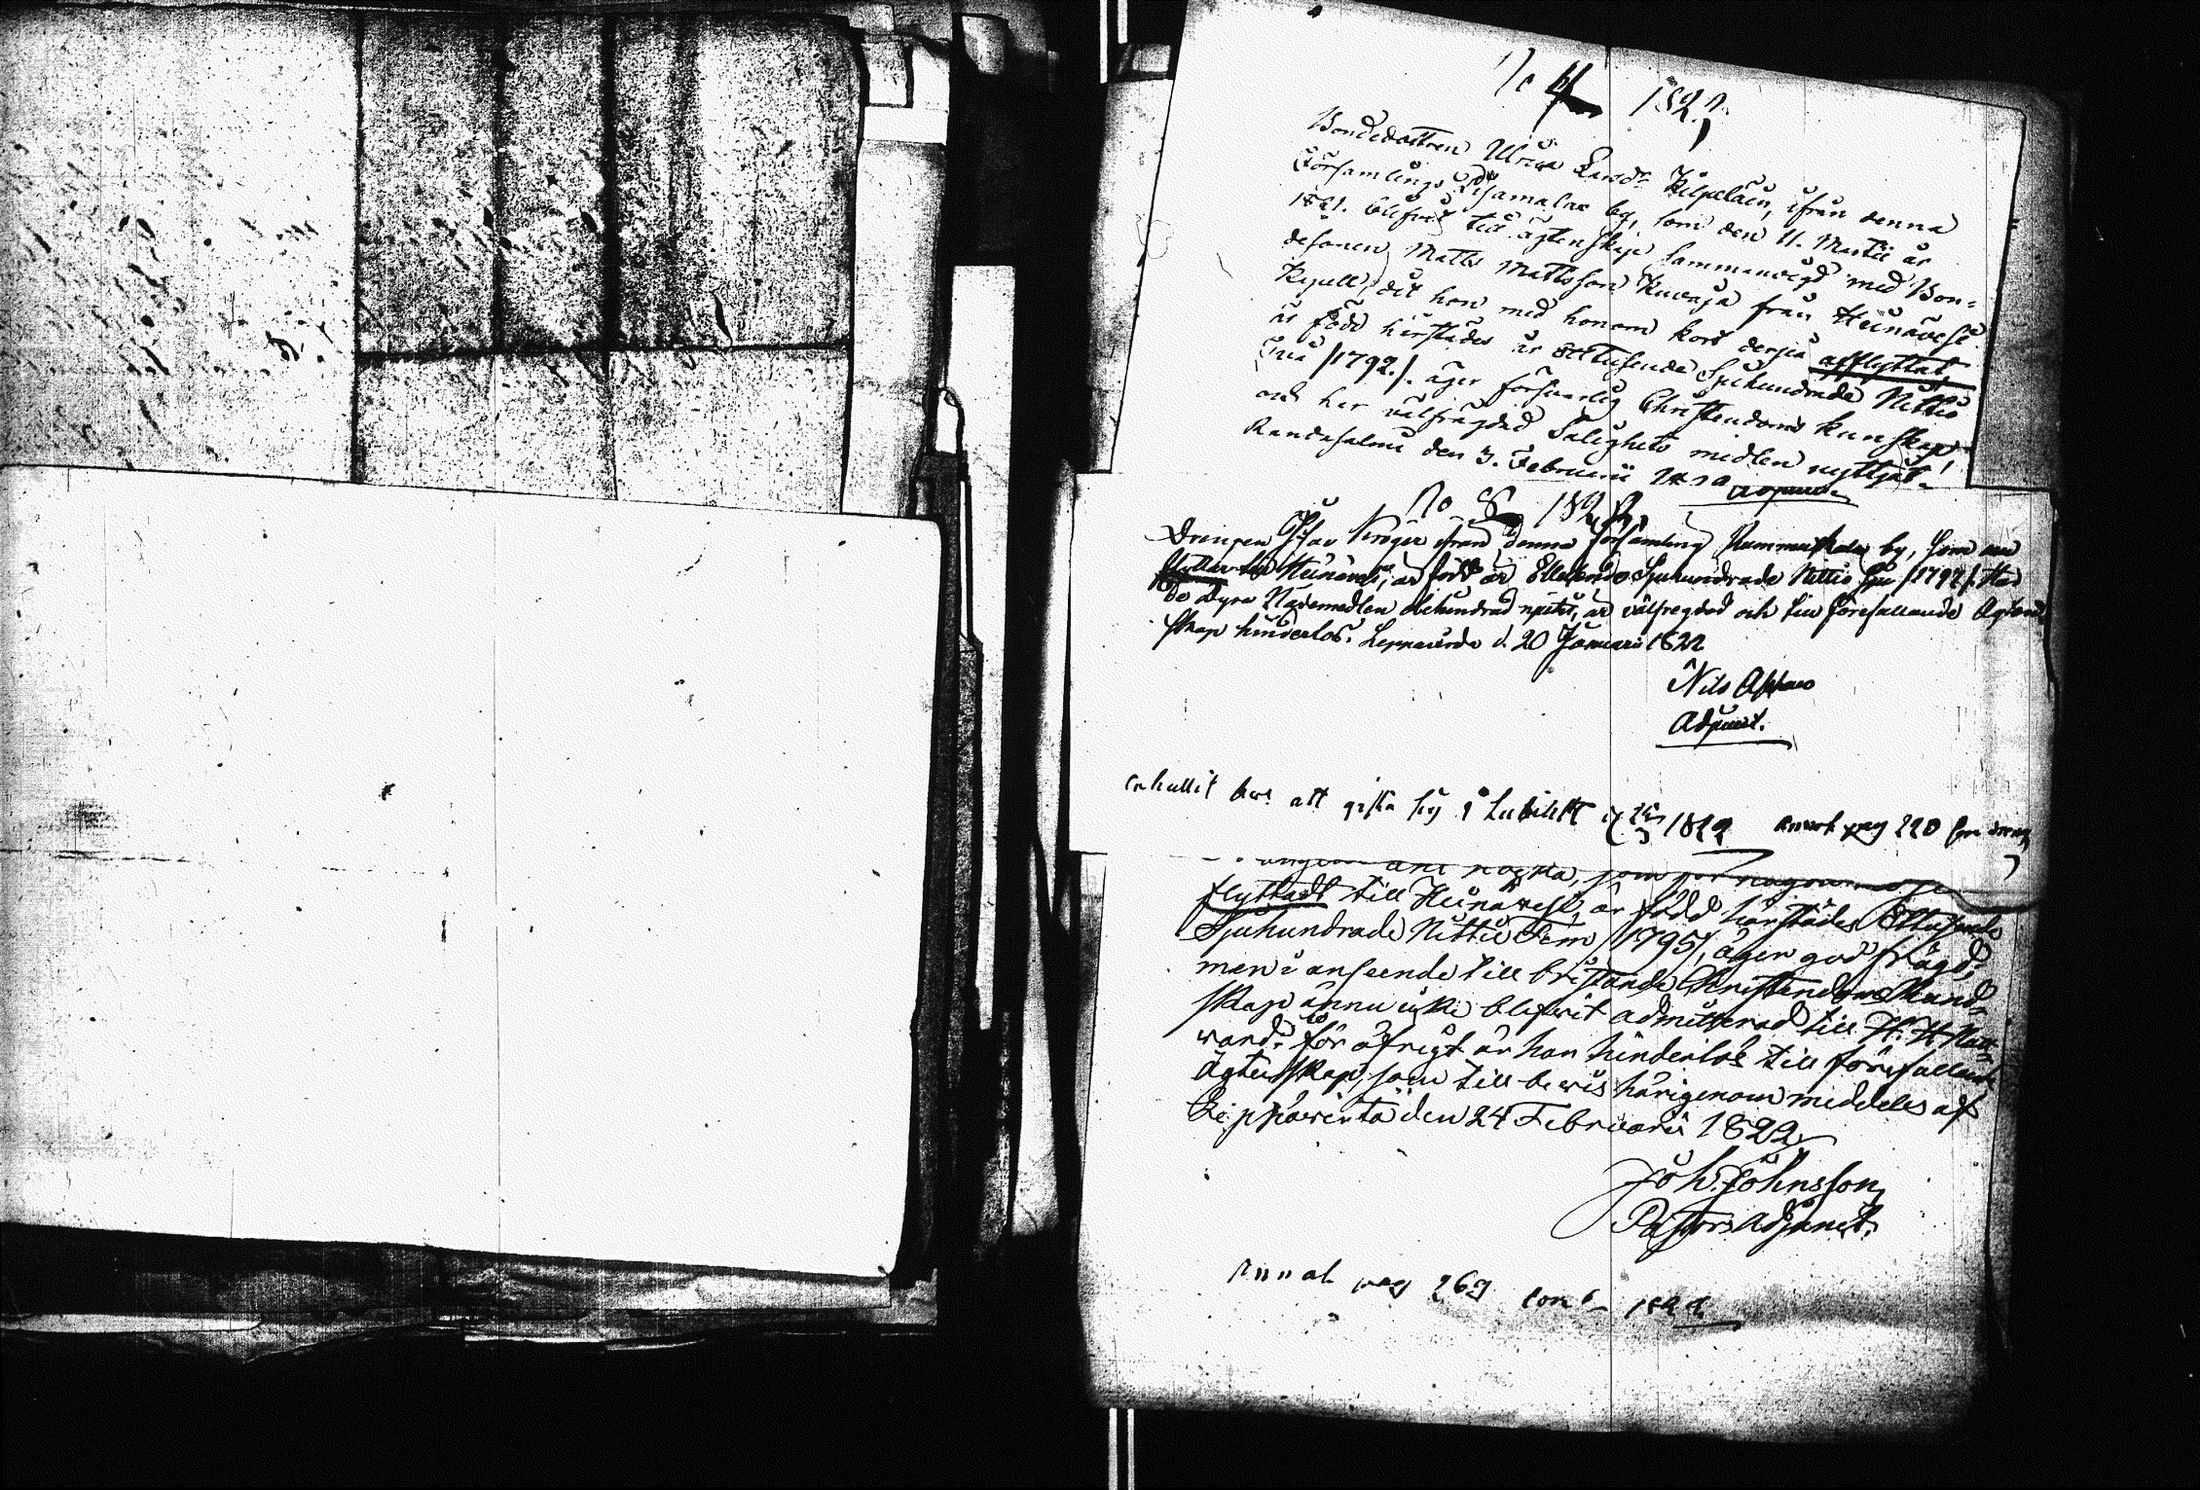 No 4 1822.
Bondedottren Ulrica Larsdr Kilpeläin, ifrån denna
Församlings by, som den 11. Martii år
1821. blifvit till ägtenskap sammanvigd med Bon-
desonen Matts Mattsson Kuvaja från Heinävesi
Kapell, dit hon med honom kort derpå afflyttat,
är född härstädes år Ettusende Sjuhundrade Nittio
Två /1792./. äger försvarlig Christendoms kunskap,
och har välfrägdad Salighets midlen nyttjat.
Randasalmi den 3. Februarii
Adjunct.
No 8 1822.
Drengen Gustav Kröger ifrån denna församling by, som nu
flyttar till Heinäves, är född år Ettusende Sjuhundrade Nittio Sju /1797/. Har
de dyra Nademedlen obehindrad nyttjat, är välfregdad och till förefallande Agten-
skap hinderlös. Leppävirda d. 20 Januari 1822
Nils
Adjunct.
erhållit bevis att gifta sig i 1822 annot pag 220
några, som för någon
flyttadt till Heinävesi, är född härstädes Ettusende
Sjuhundrade Nittio Fem /1795/, äger god frägd,
men i anseende till bristande Christendoms Kund-
skap ännu icke blifvit admitterad till H. H. Natt-
ward. för öfrigt är han hinderlös till förefallande
Ägtenskap, som till bevis härigenom meddeles af
Leppävirta den 24 Februarii 1822
Joh. Johnsson
Pastors Adjunct.
Annot pag 269 1822